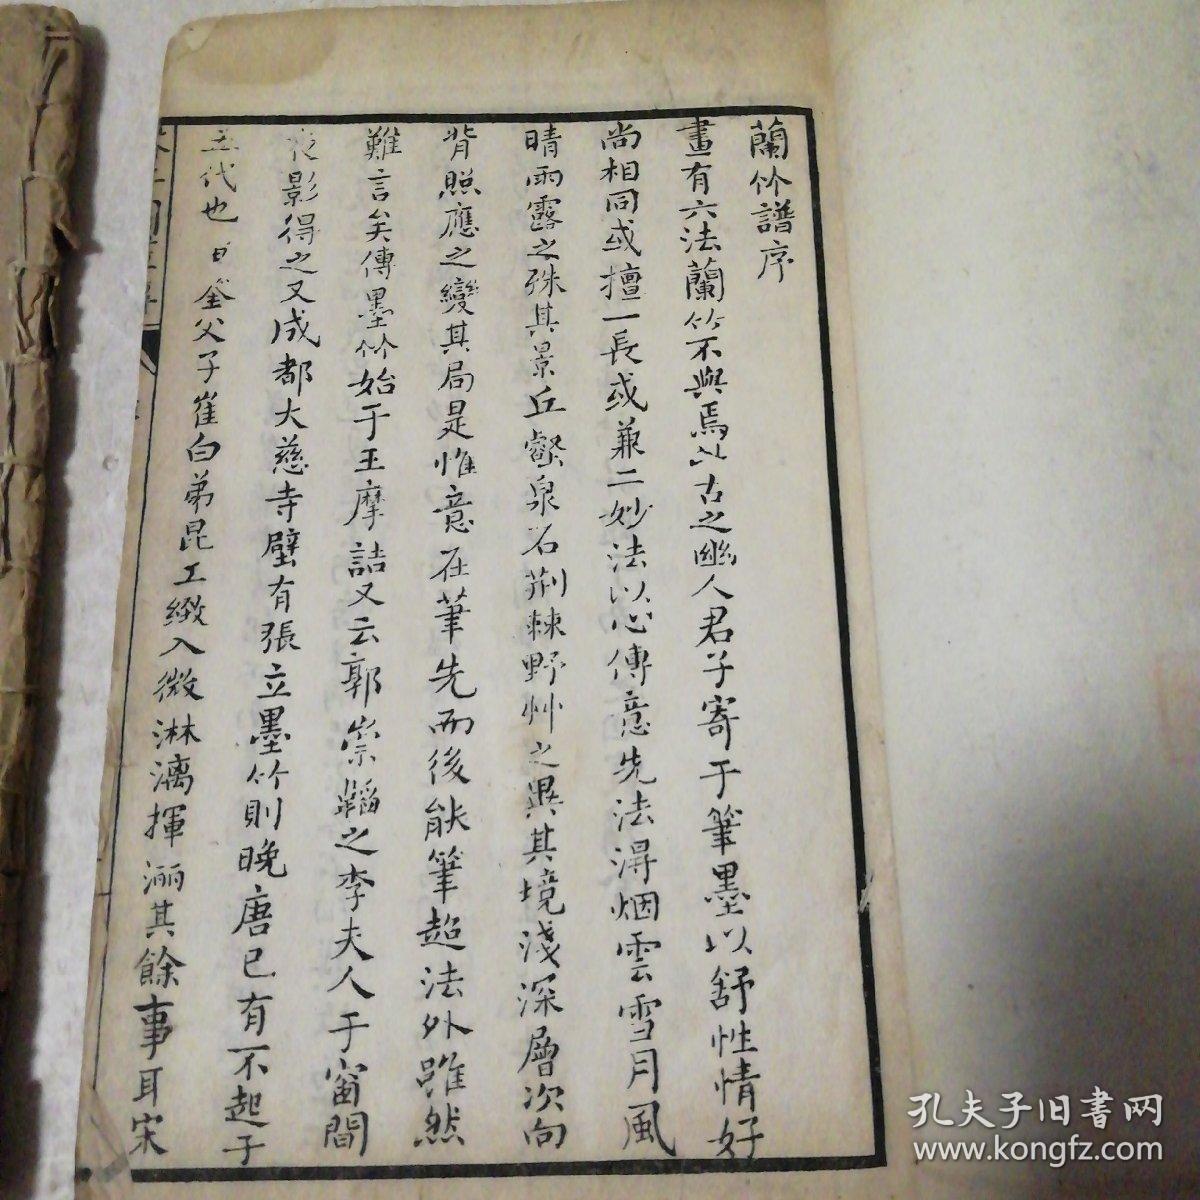 蘭竹譜序
畫有六法蘭竹不與焉以古之幽人君子寄于筆墨以舒性情好
尚相同或擅一長或兼二妙法以心傳意先法得烟雲雪月風
晴雨露之殊其景丘壑泉石荆棘野艸之異其境淺深層次向
背照應之變其局是惟意在筆先而後能筆超法外雖然
難言矣傳墨竹始于王摩詰又云郭崇韜之李夫人于窗間
夜影得之又成都大慈寺壁有張立墨竹則晚唐已有不起于
五代也 筌父子崔白弟昆工緻入微淋漓揮洒其餘事耳宋
孔夫子旧書网
www.kongfz.com